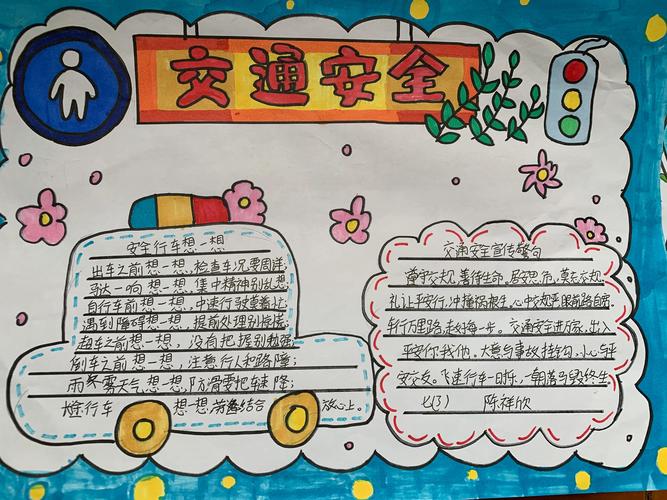 交通安全
安全行车想一想
出车之前想一想,检查车况要周详;
马达一响想一想,集中精神别乱想
自行车前想一想,中速行驶莫着忙
遇到障碍想一想,提前处理别慌张
超车之前想一想,没有把握别勉强
倒车之前想一想,注意行人和路障;
雨冬雾天气想一想,防滑要把车速降;
行车 想一想 结合 放心上。
交通安全宣传警句
遵守交规,善待生命。居安思危,莫忘交规
礼让平安行,冲撞祸根生。心中交规严眼前路自宽
车行万里路,走好每一步。交通安全进万家,出入
平安你我他。大意与事故挂钩,小心与平
安交友。飞速行车一日抖,一朝落马毁终生
七(3) 陈祥欣